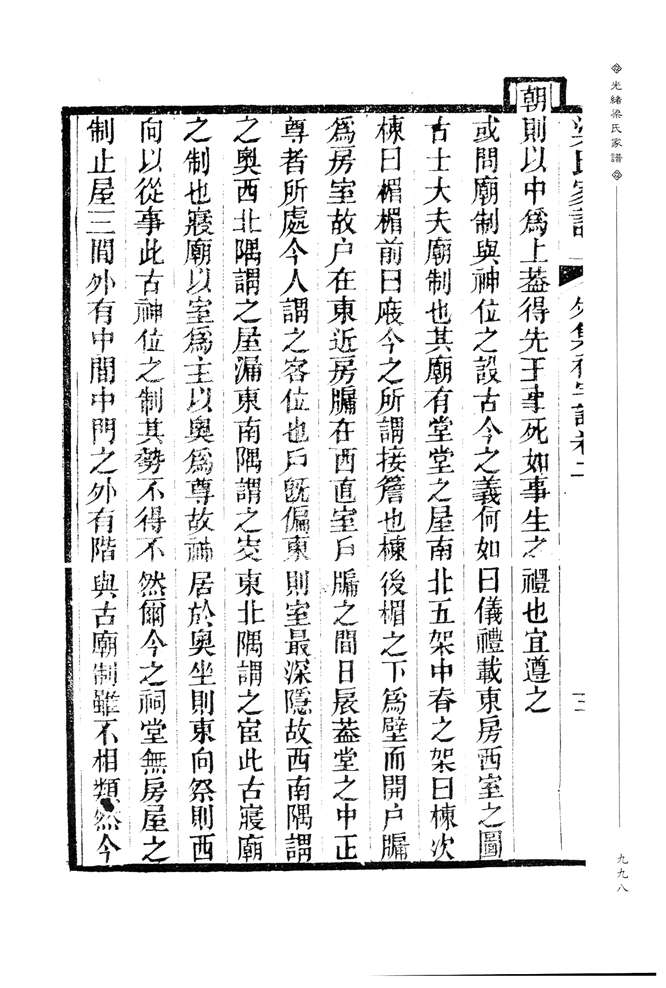 光緒梁氏家譜
梁氏家譜 外集祠宇譜卷二 三
朝則以中爲上葢得先王事死如事生之禮也宜遵之
或問廟制與神位之設古今之義何如曰儀禮載東房西室之圖
古士大夫廟制也其廟有堂堂之屋南北五架中脊之架曰棟次
棟曰楣楣前曰庪今之所謂接簷也棟後楣之下爲壁而開戶牖
爲房室故户在東近房牖在西直室戶牖之間曰扆葢堂之中正
尊者所處今人謂之客位也戶旣偏東則室最深隱故西南隅謂
之奧西北隅謂之屋漏東南隅謂之窔東北隅謂之宧此古寢廟
之制也寢廟以室爲主以奧爲尊故神居於奧坐則東向祭則西
向以從事此古神位之制其勢不得不然爾今之祠堂無房屋之
制止屋三間外有中間中門之外有階與古廟制雖不相類然今
九九八